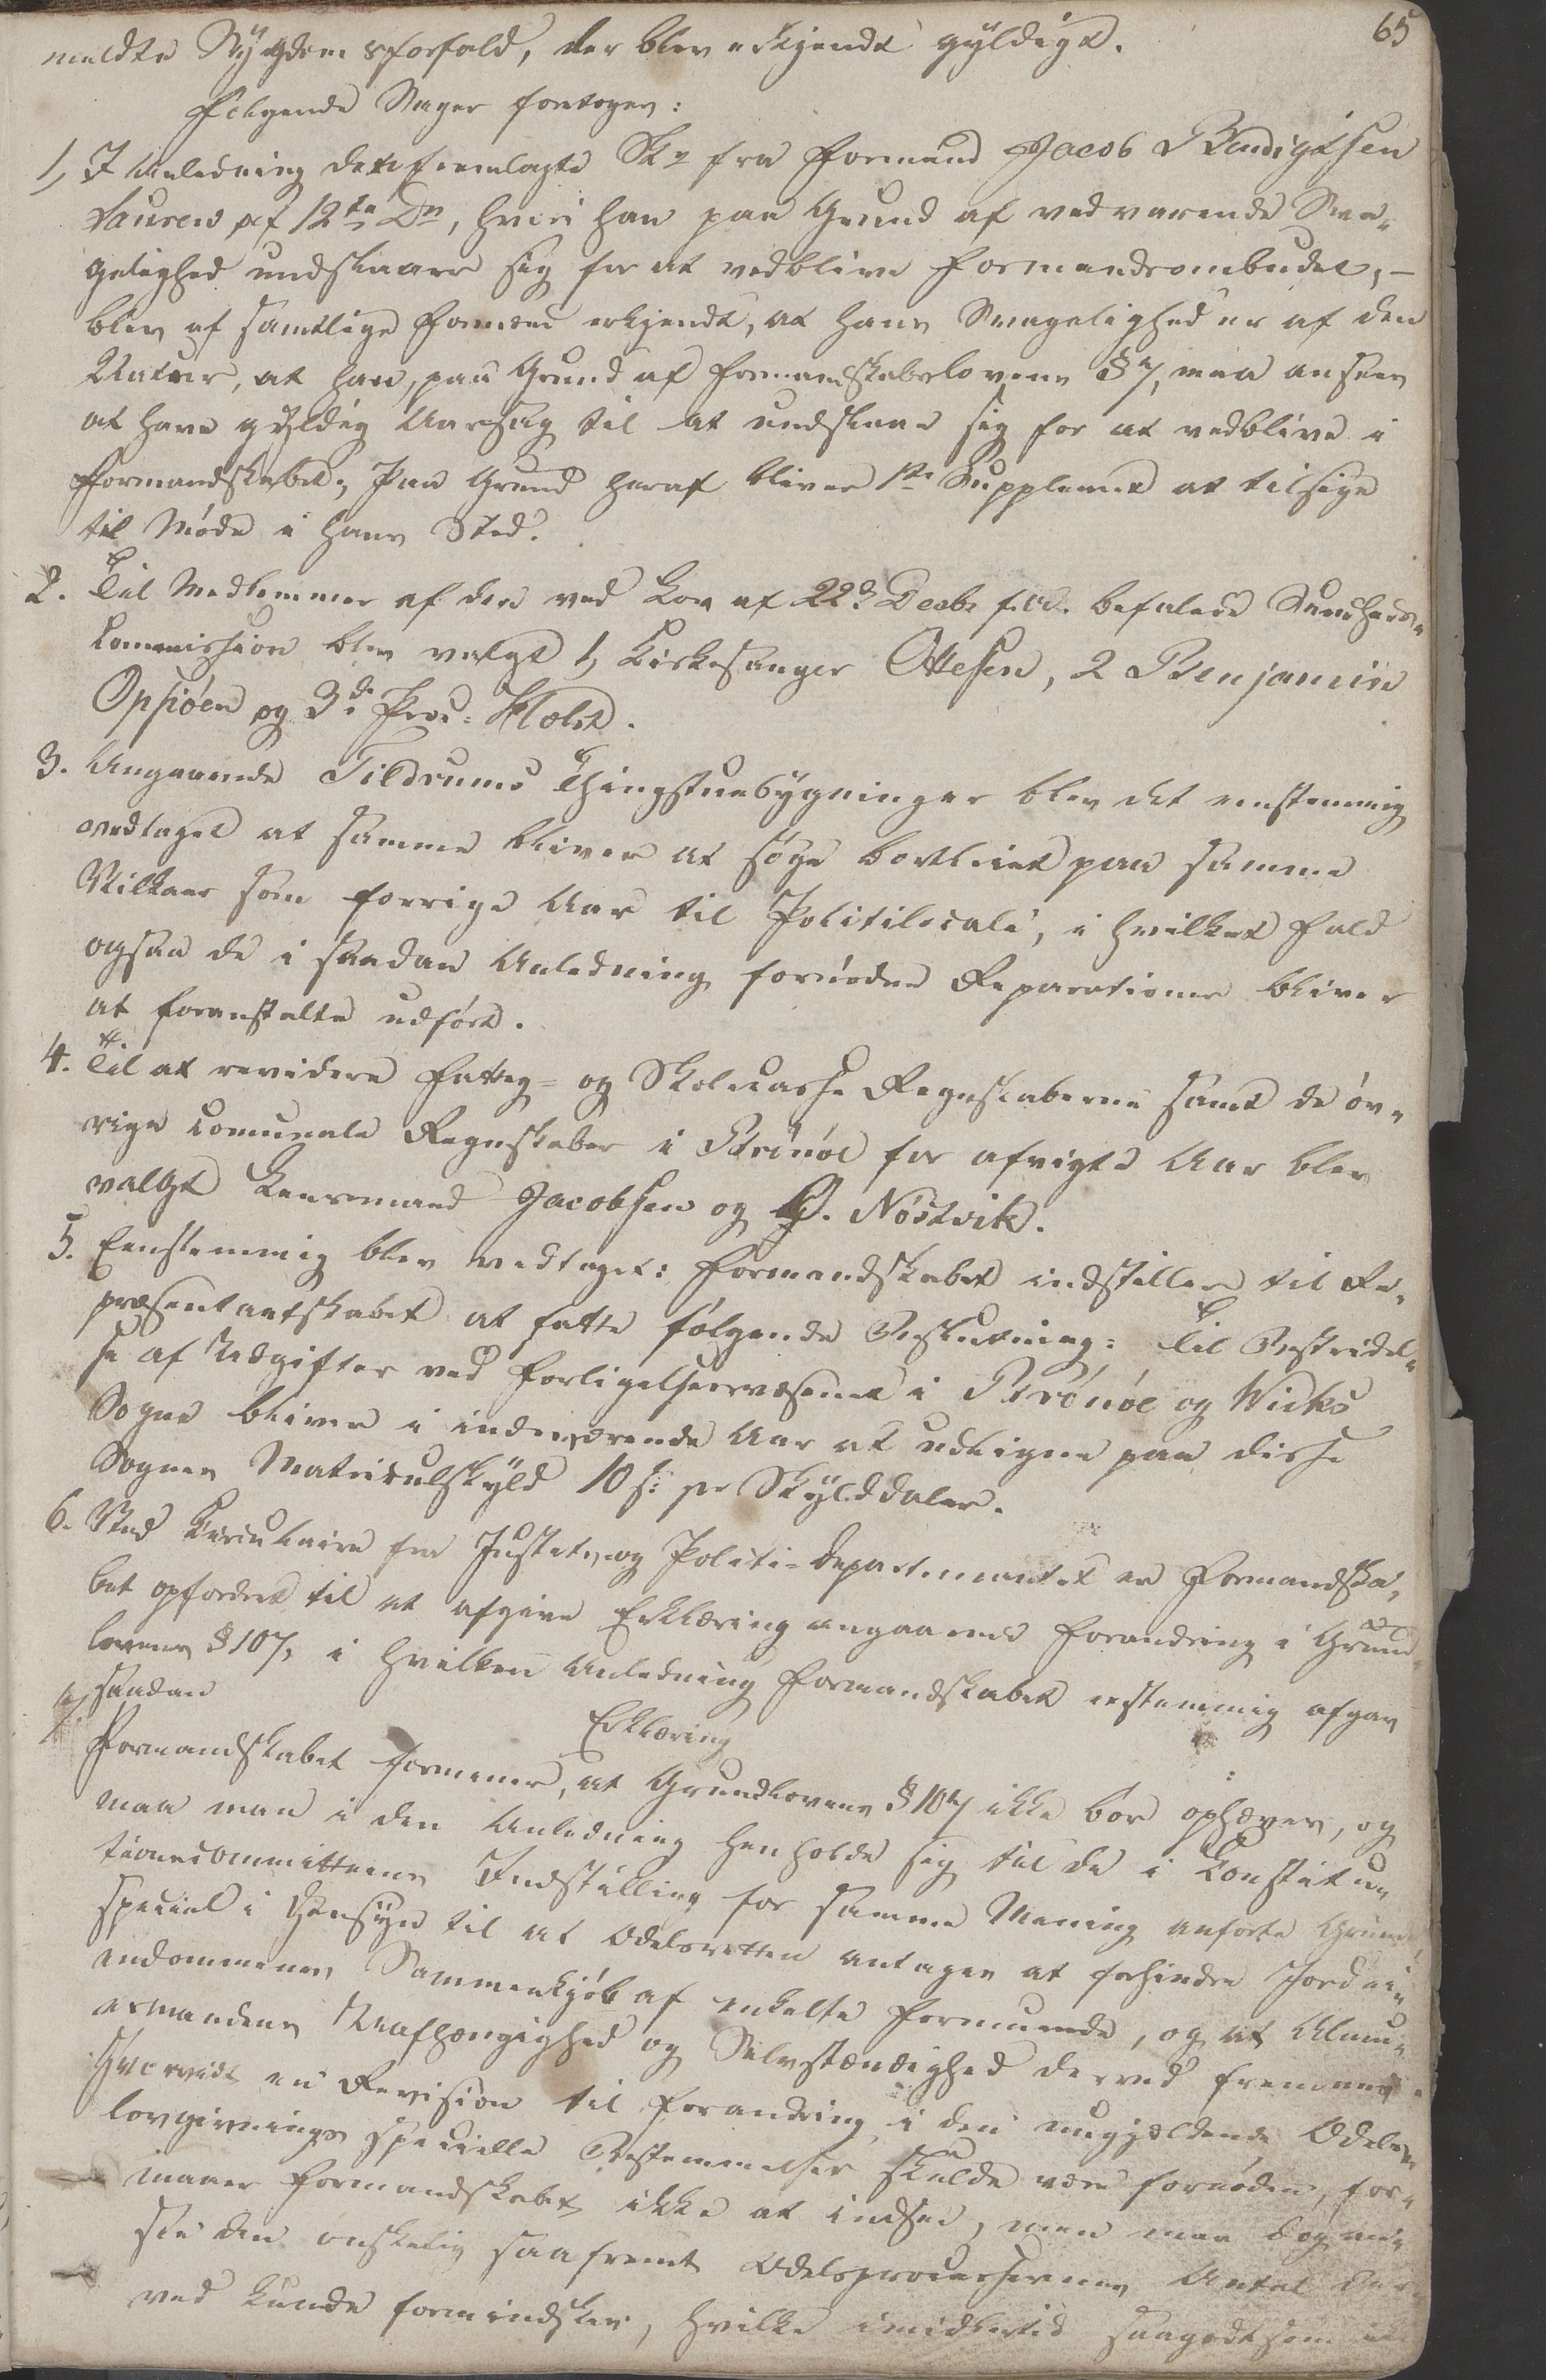 65
meldte Sygdomsforfald, der blev erkjendt gyldigt.
Følgende Sager foretoges:
1, I Anledning det fremlagte Skr fra Formand Jacob Bendigtsen
Laurens af 12te Dn, hvori han paa Grund af vedvarende Svag-
gelighed undslaaer sig for at vedblive Formandsombudet, –
blev af samtlige Formænd erkjendt, at hans Svagelighed er af den
Natur, at han, paa Grund af Formandskabslovens § 7, maa ansees
at have gyldig Aarsag til at undslaae sig for at vedblive i
Formandskabet; Paa Grund heraf bliver 1ste Suppleant at tilsige
til Møde i hans Sted.
2. Til Medlemmer af den ved Lov af 22d Decbr f. A. befalede Sundheds-
Commission blev valgt 1, Kirkesanger Ottesen, 2 Benjamin
Opsiøen og 3die Prou: Holst.
3. Angaaende Tildrums Thingstuebygninger blev det eenstemmig
vedtaget at samme bliver at søge bortleiet paa samme
Vilkaar som forrige Aar til Politilocale, i hvilket Fald
ogsaa de i saadan Anledning fornødne Reparationer bliver
at foranstalte udført.
4. Til at revidere Fattig- og Skolecasse Regnskaberne samt de øv-
rige comunale Regnskaber i Brønøe for afvigte Aar blev
valgt Lensmand Jacobsen og O. Nøstvik.
5. Eenstemmig blev vedtaget: Formandskabet indstiller til Re-
præsentantskabet at fatte følgende Beslutning: Til Bestridel-
se af Udgifter ved Forligelsesvæsenet i Brønøe og Wiks
Sogne bliver i indeværende Aar at udligne paa disse
Sognes Matriculskyld 10 s: pr Skylddaler.
6. Ved Circulaire fra Justits og Politi-Departementet er Formandska-
bet opfordret til at afgive Erklæring angaaende Forandring i Grund-
lovens § 107, i hvilken Anledning Formandskabet eenstemmig afgav
saadan
Erklæring
Formandskabet formener, at Grundlovens § 107 ikke bør ophæves, og
maa man i den Anledning henholde sig til de i Constitu-
tionscommitteens Indstilling for samme Mening anførte Grunde,
speciel i Hensyn til at Odelsretten antages at forhindre Jordei-
endommenes Sammenkjøb af enkelte Formuende, og at Almu-
esmandens Uafhængighed og Selvstændighed derved fremmes.
Hvorvidt en Revision til Forandring i den nugjældende Odels-
lovgivnings specielle Bestemmelser skulde være fornøden, for-
maaer Formandskabet ikke at indsee, men maa dog an-
see den ønskelig saafremt Odelsprocessernes Antal der-
ved kunde formindskes, hvilke imidlertid saagodtsom